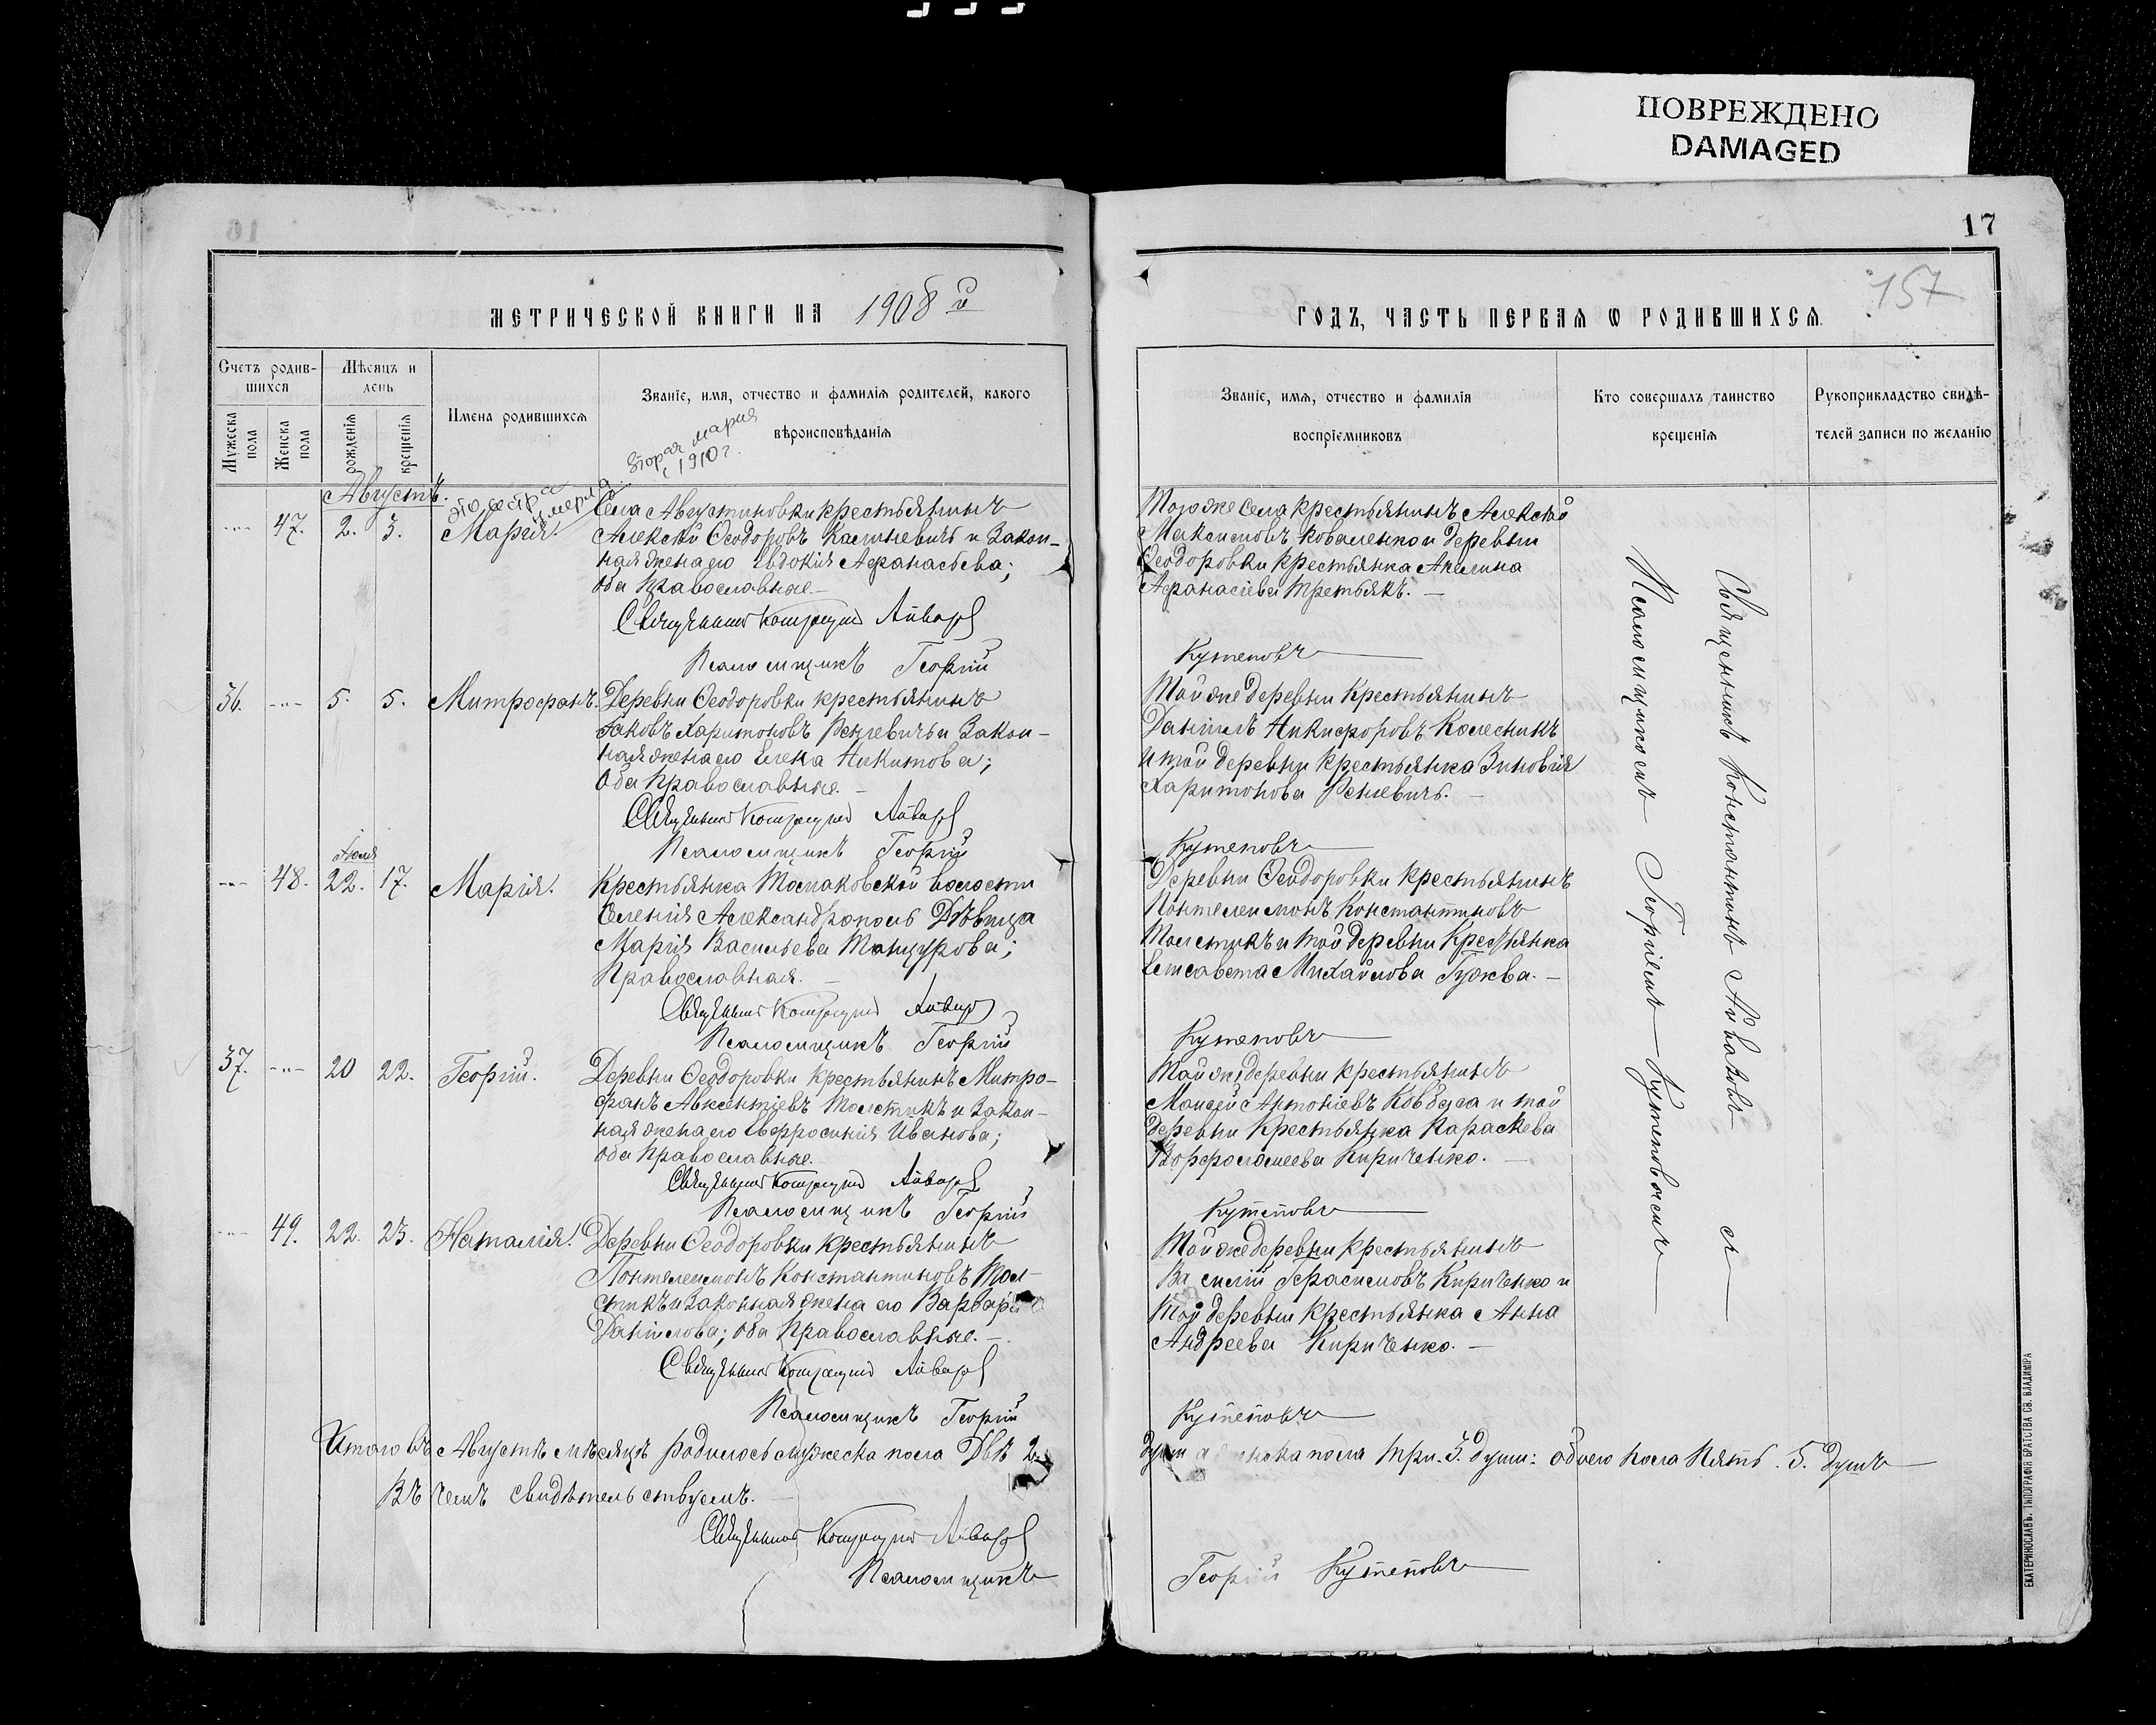 ПОВРЕЖДЕНО
DAMAGED
17
157
МЕТРИЧЕСКОЙ КНИГИ НА 1908 й
Счетъ родив-
шихся
Мѣсяцъ и
день
Мужеска
пола
Женска
пола
рожденія
крещенія
Имена родившихся
Званіе, имя, отчество и фамилія родителей, какого
вѣроисповѣданія
вторая мария
с 1910 г.
это сестра
умерла
Августъ.
47. 2. 3. Марія.
Села Августиновки крестьянинъ
Алексѣй Ѳеодоровъ и Закон-
ная жена его Евдокія Аѳанасьева;
Оба Православные.
Священникъ Айваз
Псаломщикъ Георгій
36. 5. 5. Митрофанъ.
Деревни Ѳеодоровки крестьянинъ
Іаковъ Харитоновъ и Закон-
ная жена его Елена Никитова;
Оба Православные.
Священникъ Айваз
Псаломщикъ Георгій
Іюля
48. 22. 17. Марія.
Крестьянка Томаковской волости
Селенія Александрополь Дѣвица
Марія Васильева;
Православная.
Священникъ Айваз
Псаломщикъ Георгій
37. 20 22. Георгій.
Деревни Ѳеодоровки крестьянинъ Митро-
фанъ Авксентіевъ Толстикъ и Закон-
ная жена его Евфросинія Иванова;
Оба Православные.
Священникъ Айваз
Псаломщикъ Георгій
49. 22. 23. Наталія.
Деревни Ѳеодоровки крестьянинъ
Пантелеимонъ Константиновъ Тол-
стикъ и Законная жена его Варвара
Даніилова; Оба Православные.
Священникъ Айваз
Псаломщикъ Георгій
Итого въ Августѣ мѣсяцѣ родилось мужеска пола Двѣ 2
Въ чемъ свидѣтельствуемъ.
Священникъ Айваз
Псаломщикъ
ГОДЪ, ЧАСТЬ ПЕРВАЯ Ѡ РОДИВШИХСЯ.
Званіе, имя, отчество и фамилія
воспріемниковъ
Кто совершалъ таинство
крещенія
Рукоприкладство свидѣ-
телей записи по желанію
Того же села крестьянинъ Алексѣй
Максимовъ Коваленко и деревни
Ѳеодоровки крестьянка Акилина
Аѳанасіева Третьякъ.
Кутеповъ
Той же деревни Крестьянинъ
Даніилъ Никифоровъ Колесникъ
и той деревни крестьянка Зиновія
Харитонова
Кутеповъ
Деревни Ѳеодоровки крестьянинъ
Пантелеимонъ Константиновъ
Толстикъ и той деревни Крестьянка
Елисавета Михайлова Гужва.
Кутеповъ
Той же деревни крестьянинъ
Моисей Антоніевъ Ковбаса и той
деревни Крестьянка Параскева
Ворфоломеева Кириченко.
Кутеповъ
Той же деревни крестьянинъ
Василій Герасимовъ Кириченко и
той деревни крестьянка Анна
Андреева Кириченко.
Кутеповъ
Священникъ Константинъ Айвазовъ съ
Псаломщикомъ Георгіемъ Кутеповымъ
пола три. 3. души: обоего пола Пять. 5. Душъ
Георгій Кутеповъ
ЕКАТЕРИНОСЛАВЪ. ТИПОГРАФІЯ БРАТСТВА СВ. ВЛАДИМІРА